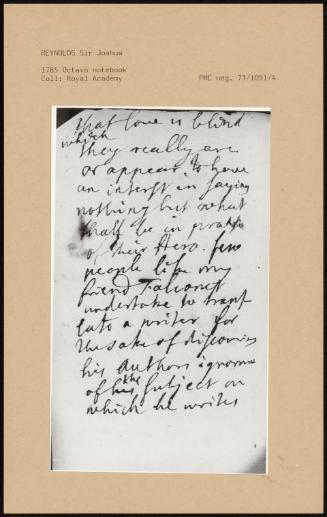 REYNOLDS Sir Joshua
1785 Octavo notebook
Coll: Royal Academy
PMC neg. 71/1051/4
that love is blind
which
they really are
or appear to have
an interst in saying
nothing but what
shall be in praise
of their Hero. few
people like my
friend Falconet
undertake to transl
late a writer for
the sake of discovering
his Authors ignorance
of his the subject on
which he writes